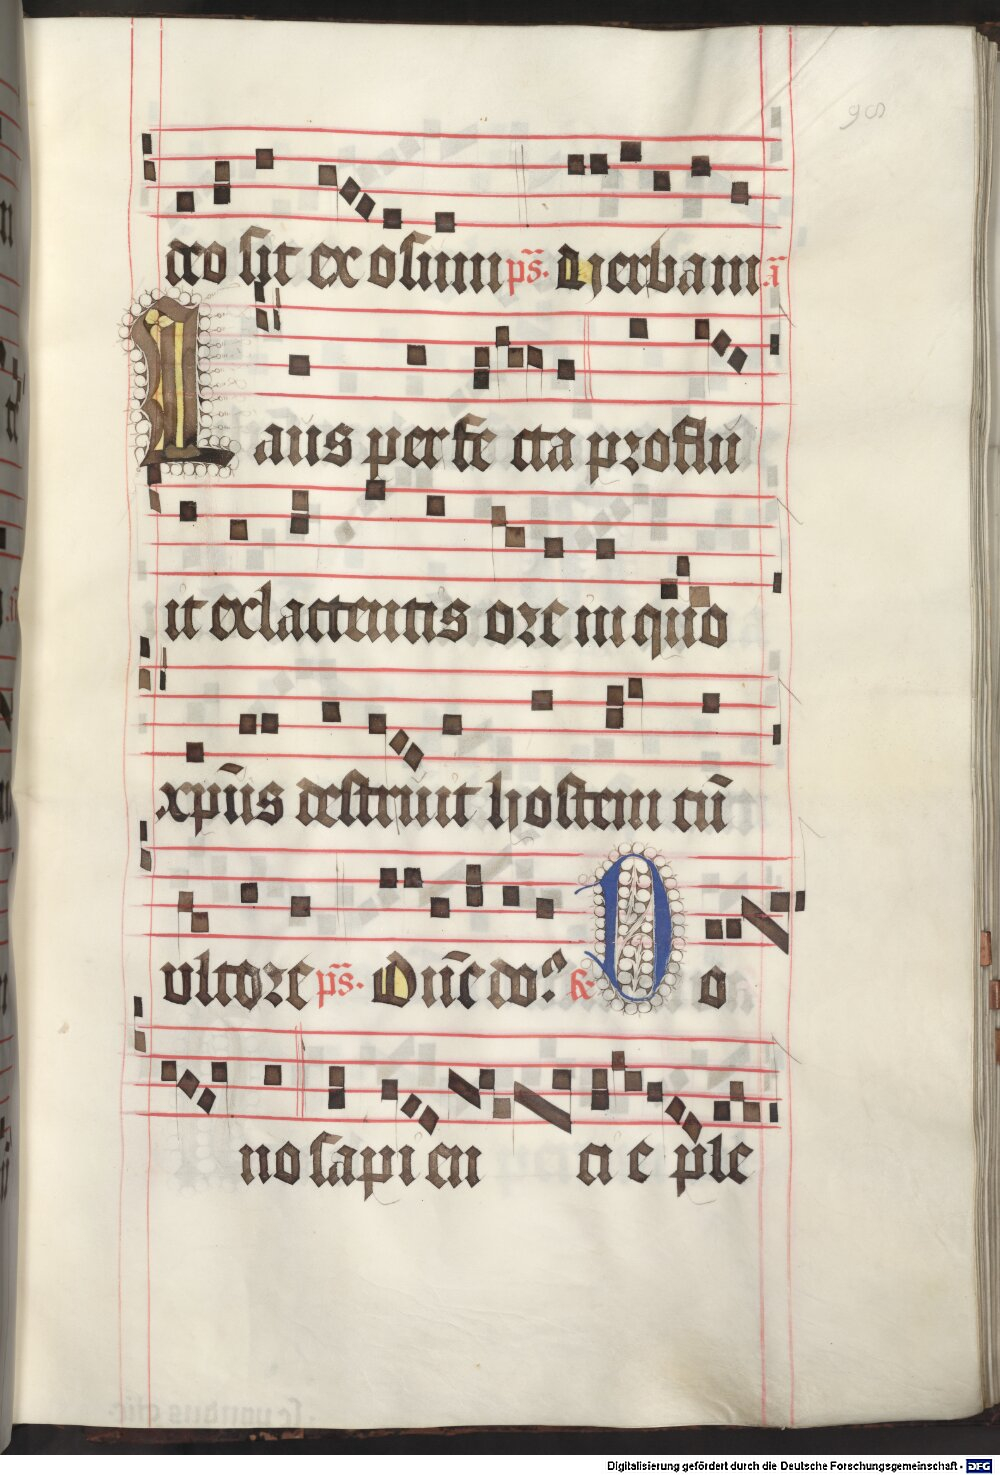 98
deo sit ex osum ps̄. Verba m ā
Laus per fe cta proflu
it ex lactentis ore in quo
xp̄us destruit hostem cū
ultore ps̄. Dn̄e do? ℞ Do
no sapi en ci e ple
Digitalisierung gefördert durch die Deutsche Forschungsgemeinschaft - DFG